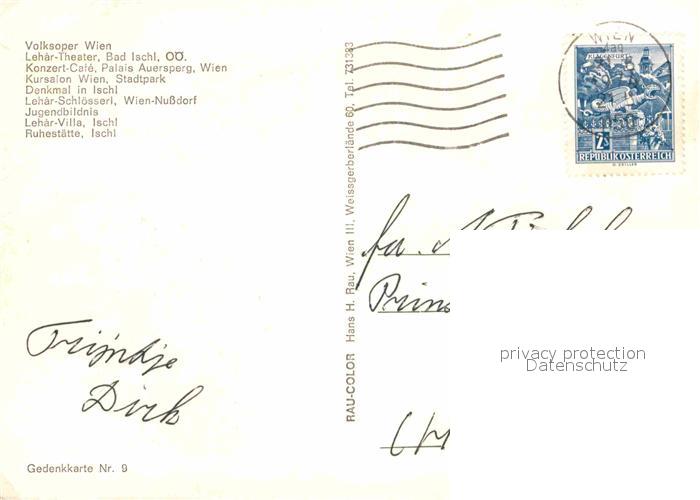 Volksoper Wien
Lehár-Theater, Bad Ischl, OÖ.
Konzert-Café, Palais Auersperg, Wien
Kursalon Wien, Stadtpark
Denkmal in Ischl
Lehár-Schlösserl, Wien-Nußdorf
Jugendbildnis
Lehár-Villa, Ischl
Ruhestätte, Ischl
Trijntje
Dirk
Gedenkkarte Nr. 9
RAU-COLOR Hans H. Rau, Wien III, Weissgerberlände 60, Tel. 731383
WIEN
KLAGENFURT
REPUBLIK ÖSTERREICH
fa.
privacy protection
Datenschutz